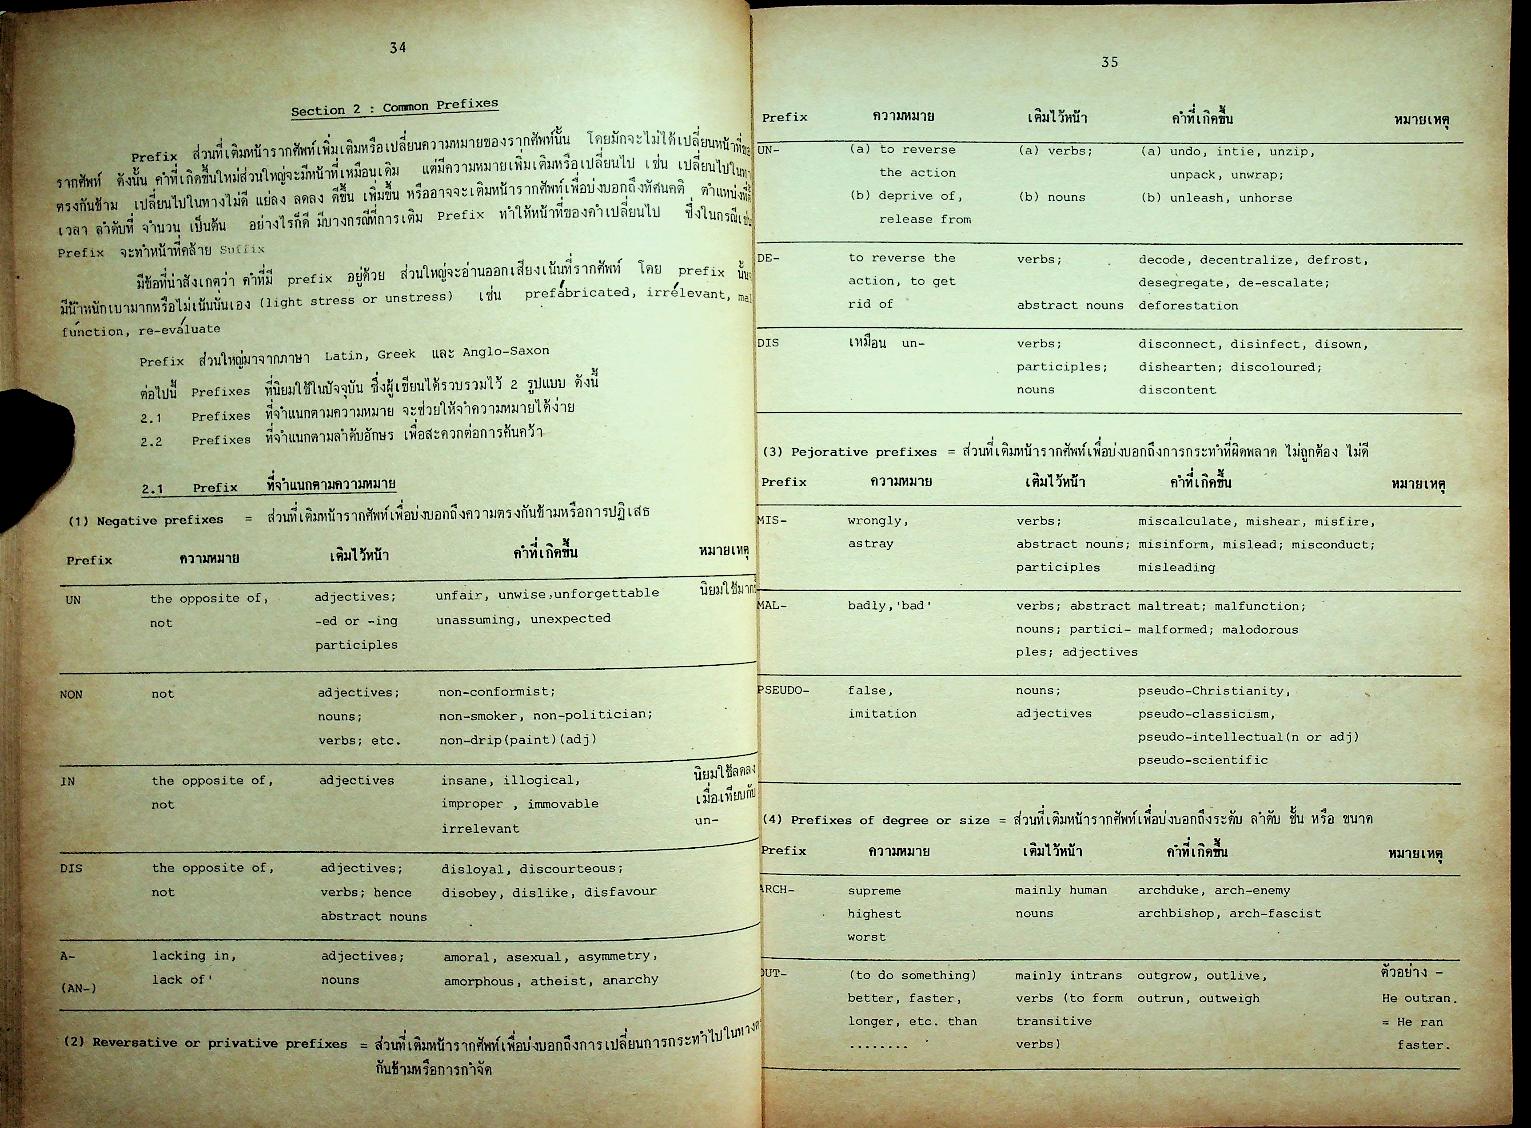 34
Section 2 : Common Prefixes
Prefix ส่วนที่เติมหน้ารากศัพท์เพิ่มเติมหรือเปลี่ยนความหมายของรากศัพท์นั้น โดยมักจะไม่ได้เปลี่ยนหน้าที่ของ
รากศัพท์ ดังนั้น คำที่เกิดขึ้นใหม่ส่วนใหญ่จะมีหน้าที่เหมือนเดิม แต่มีความหมายเพิ่มเติมหรือเปลี่ยนไป เช่น เปลี่ยนไปในทาง
ตรงกันข้าม เปลี่ยนไปในทางไม่ดี แย่ลง ลดลง ดีขึ้น เพิ่มขึ้น หรืออาจจะเติมหน้ารากศัพท์เพื่อบ่งบอกถึงทัศนคติ ตำแหน่งที่ตั้ง
เวลา ลำดับที่ จำนวน เป็นต้น อย่างไรก็ดี มีบางกรณีที่การเติม Prefix ทำให้หน้าที่ของคำเปลี่ยนไป ซึ่งในกรณีเช่น
Prefix จะทำหน้าที่คล้าย Suffix
มีข้อที่น่าสังเกตว่า คำที่มี prefix อยู่ด้วย ส่วนใหญ่จะอ่านออกเสียงเน้นที่รากศัพท์ โดย prefix นั้น
มีน้ำหนักเบามากหรือไม่เน้นนั่นเอง (light stress or unstress) เช่น prefábricated, irrélevant, mal
fúnction, re-eváluate
Prefix ส่วนใหญ่มาจากภาษา Latin, Greek และ Anglo-Saxon
ต่อไปนี้ Prefixes ที่นิยมใช้ในปัจจุบัน ซึ่งผู้เขียนได้รวบรวมไว้ 2 รูปแบบ ดังนี้
2.1 Prefixes ที่จำแนกตามความหมาย จะช่วยให้จำความหมายได้ง่าย
2.2 Prefixes ที่จำแนกตามลำดับอักษร เพื่อสะดวกต่อการค้นคว้า
2.1 Prefix ที่จำแนกตามความหมาย
(1) Negative prefixes = ส่วนที่เติมหน้ารากศัพท์เพื่อบ่งบอกถึงความตรงกันข้ามหรือการปฏิเสธ
Prefix ความหมาย เติมไว้หน้า คำที่เกิดขึ้น หมายเหตุ
UN the opposite of, adjectives; unfair, unwise,unforgettable นิยมใช้มาก
not -ed or -ing unassuming, unexpected
participles
NON not adjectives; non-conformist;
nouns; non-smoker, non-politician;
verbs; etc. non-drip(paint)(adj)
IN the opposite of, adjectives insane, illogical, นิยมใช้ลดลง
not improper , immovable เมื่อเทียบกับ
irrelevant un-
DIS the opposite of, adjectives; disloyal, discourteous;
not verbs; hence disobey, dislike, disfavour
abstract nouns
A- lacking in, adjectives; amoral, asexual, asymmetry,
(AN-) lack of' nouns amorphous, atheist, anarchy
(2) Reversative or privative prefixes = ส่วนที่เติมหน้ารากศัพท์เพื่อบ่งบอกถึงการเปลี่ยนการกระทำไปในทางตรง
กันข้ามหรือการกำจัด
35
Prefix ความหมาย เติมไว้หน้า คำที่เกิดขึ้น หมายเหตุ
UN- (a) to reverse (a) verbs; (a) undo, intie, unzip,
the action unpack, unwrap;
(b) deprive of, (b) nouns (b) unleash, unhorse
release from
DE- to reverse the verbs; decode, decentralize, defrost,
action, to get desegregate, de-escalate;
rid of abstract nouns deforestation
DIS เหมือน un- verbs; disconnect, disinfect, disown,
participles; dishearten; discoloured;
nouns discontent
(3) Pejorative prefixes = ส่วนที่เติมหน้ารากศัพท์เพื่อบ่งบอกถึงการกระทำที่ผิดพลาด ไม่ถูกต้อง ไม่ดี
Prefix ความหมาย เติมไว้หน้า คำที่เกิดขึ้น หมายเหตุ
MIS- wrongly, verbs; miscalculate, mishear, misfire,
astray abstract nouns; misinform, mislead; misconduct;
participles misleading
MAL- badly,'bad' verbs; abstract maltreat; malfunction;
nouns; partici- malformed; malodorous
ples; adjectives
PSEUDO- false, nouns; pseudo-Christianity,
imitation adjectives pseudo-classicism,
pseudo-intellectual(n or adj)
pseudo-scientific
(4) Prefixes of degree or size = ส่วนที่เติมหน้ารากศัพท์เพื่อบ่งบอกถึงระดับ ลำดับ ชั้น หรือ ขนาด
Prefix ความหมาย เติมไว้หน้า คำที่เกิดขึ้น หมายเหตุ
ARCH- supreme mainly human archduke, arch-enemy
highest nouns archbishop, arch-fascist
worst
OUT- (to do something) mainly intrans outgrow, outlive, ตัวอย่าง -
better, faster, verbs (to form outrun, outweigh He outran.
longer, etc. than transitive = He ran
........ verbs) faster.